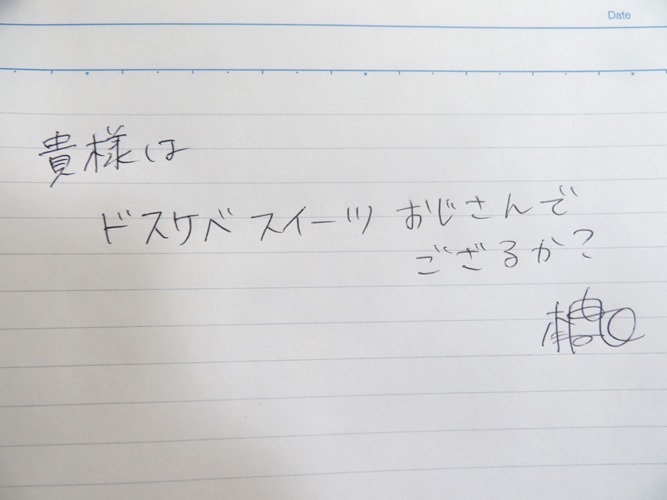 Date
貴様は
ドスケベスイーツおじさんで
ござるか?